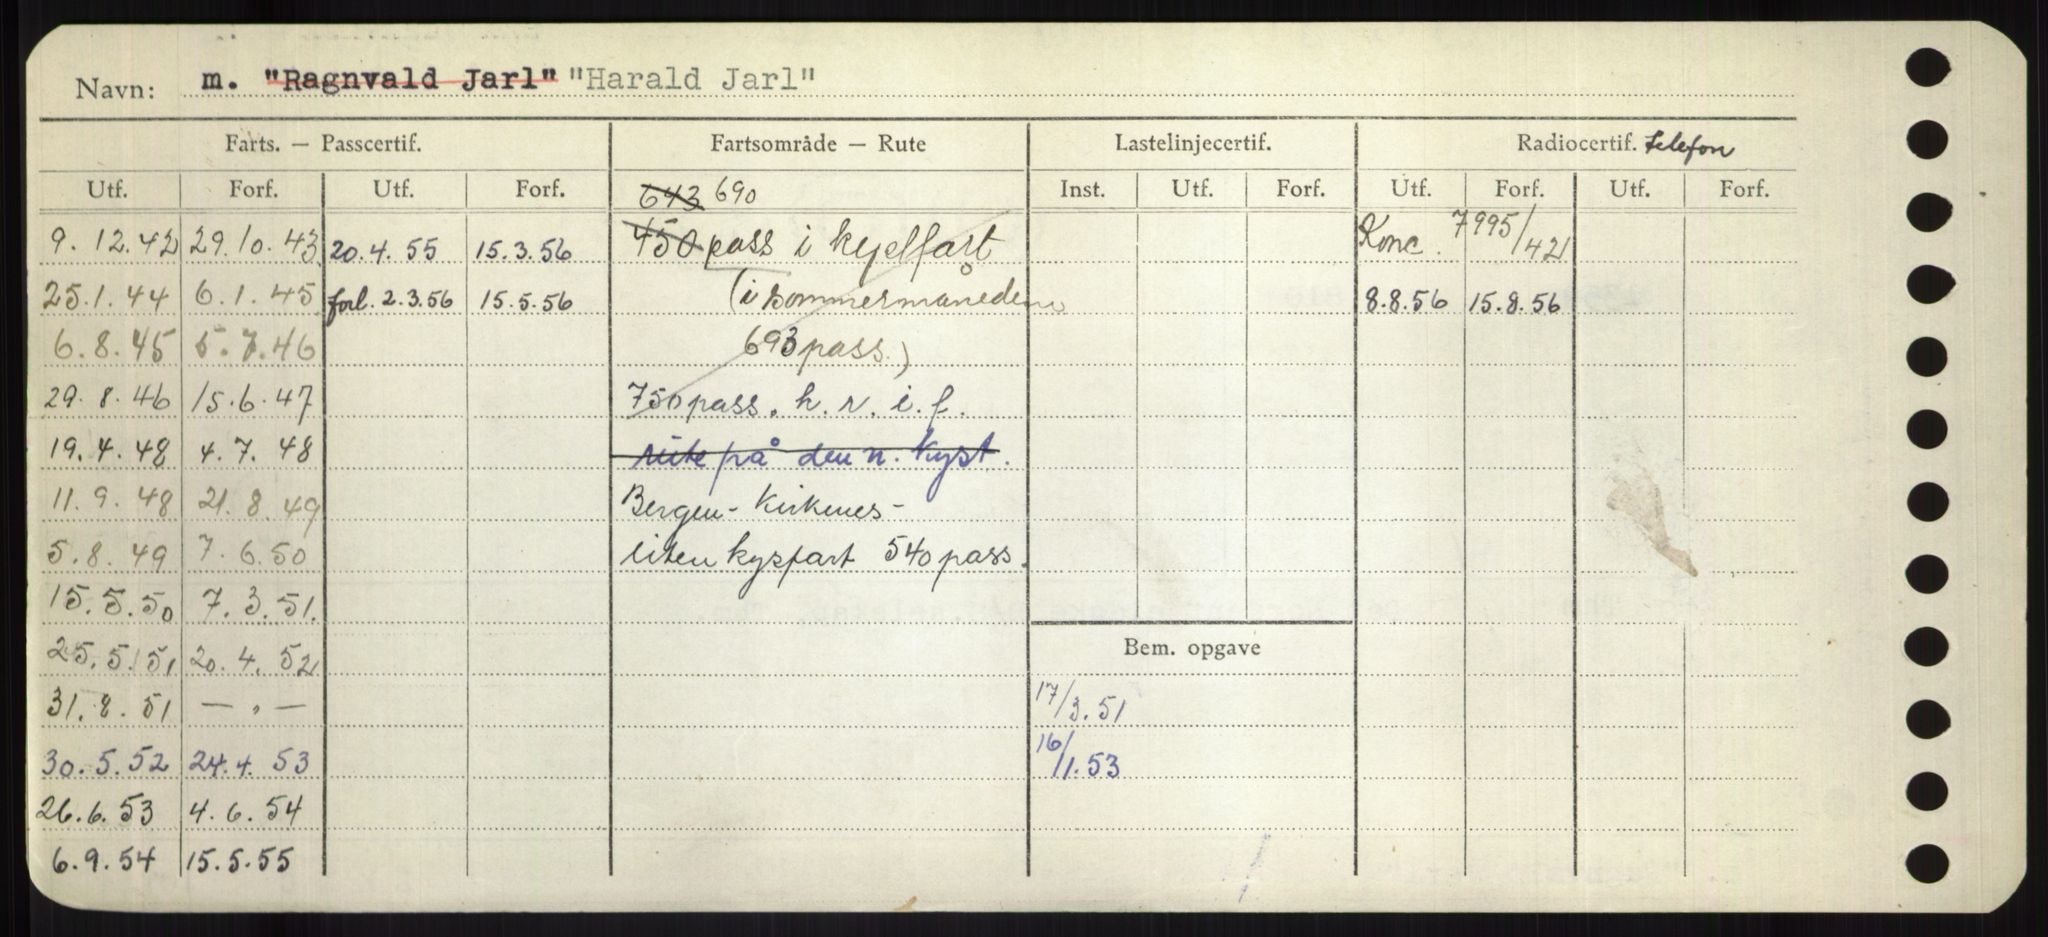 Navn: m. "Ragnvald Jarl" "Harald Jarl"
Farts. — Passcertif. Fartsområde — Rute Lastelinjecertif. Radiocertif. telefon
Utf. Forf. Utf. Forf. 643 690 Inst. Utf. Forf. Utf. Forf. Utf. Forf.
9. 12. 42 29. 10. 43 20. 4. 55 15. 3. 56 450 pass i kyelfart Konc. 7995/42
25. 1. 44 6. 1. 45 forl. 2. 3. 56 15. 5. 56 (i sommermånedene 8. 8. 56 15. 8. 56
6. 8. 45 5. 7. 46 693 pass.)
29. 8. 46 15. 6. 47 750 pass. h. r. i. f.
19. 4. 48 4. 7. 48 rute på den n. Kyst.
11. 9. 48 21. 8. 49 Bergen - Kirkenes -
5. 8. 49 7. 6. 50 liten kysfart 540 pass.
15. 5. 50 7. 3. 51.
25. 5. 51 20. 4. 52 Bem. opgave
31. 8. 51 — " — 17/3. 51
30. 5. 52 24. 4. 53 16/1. 53
26. 6. 53 4. 6. 54
6. 9. 54 15. 5. 55